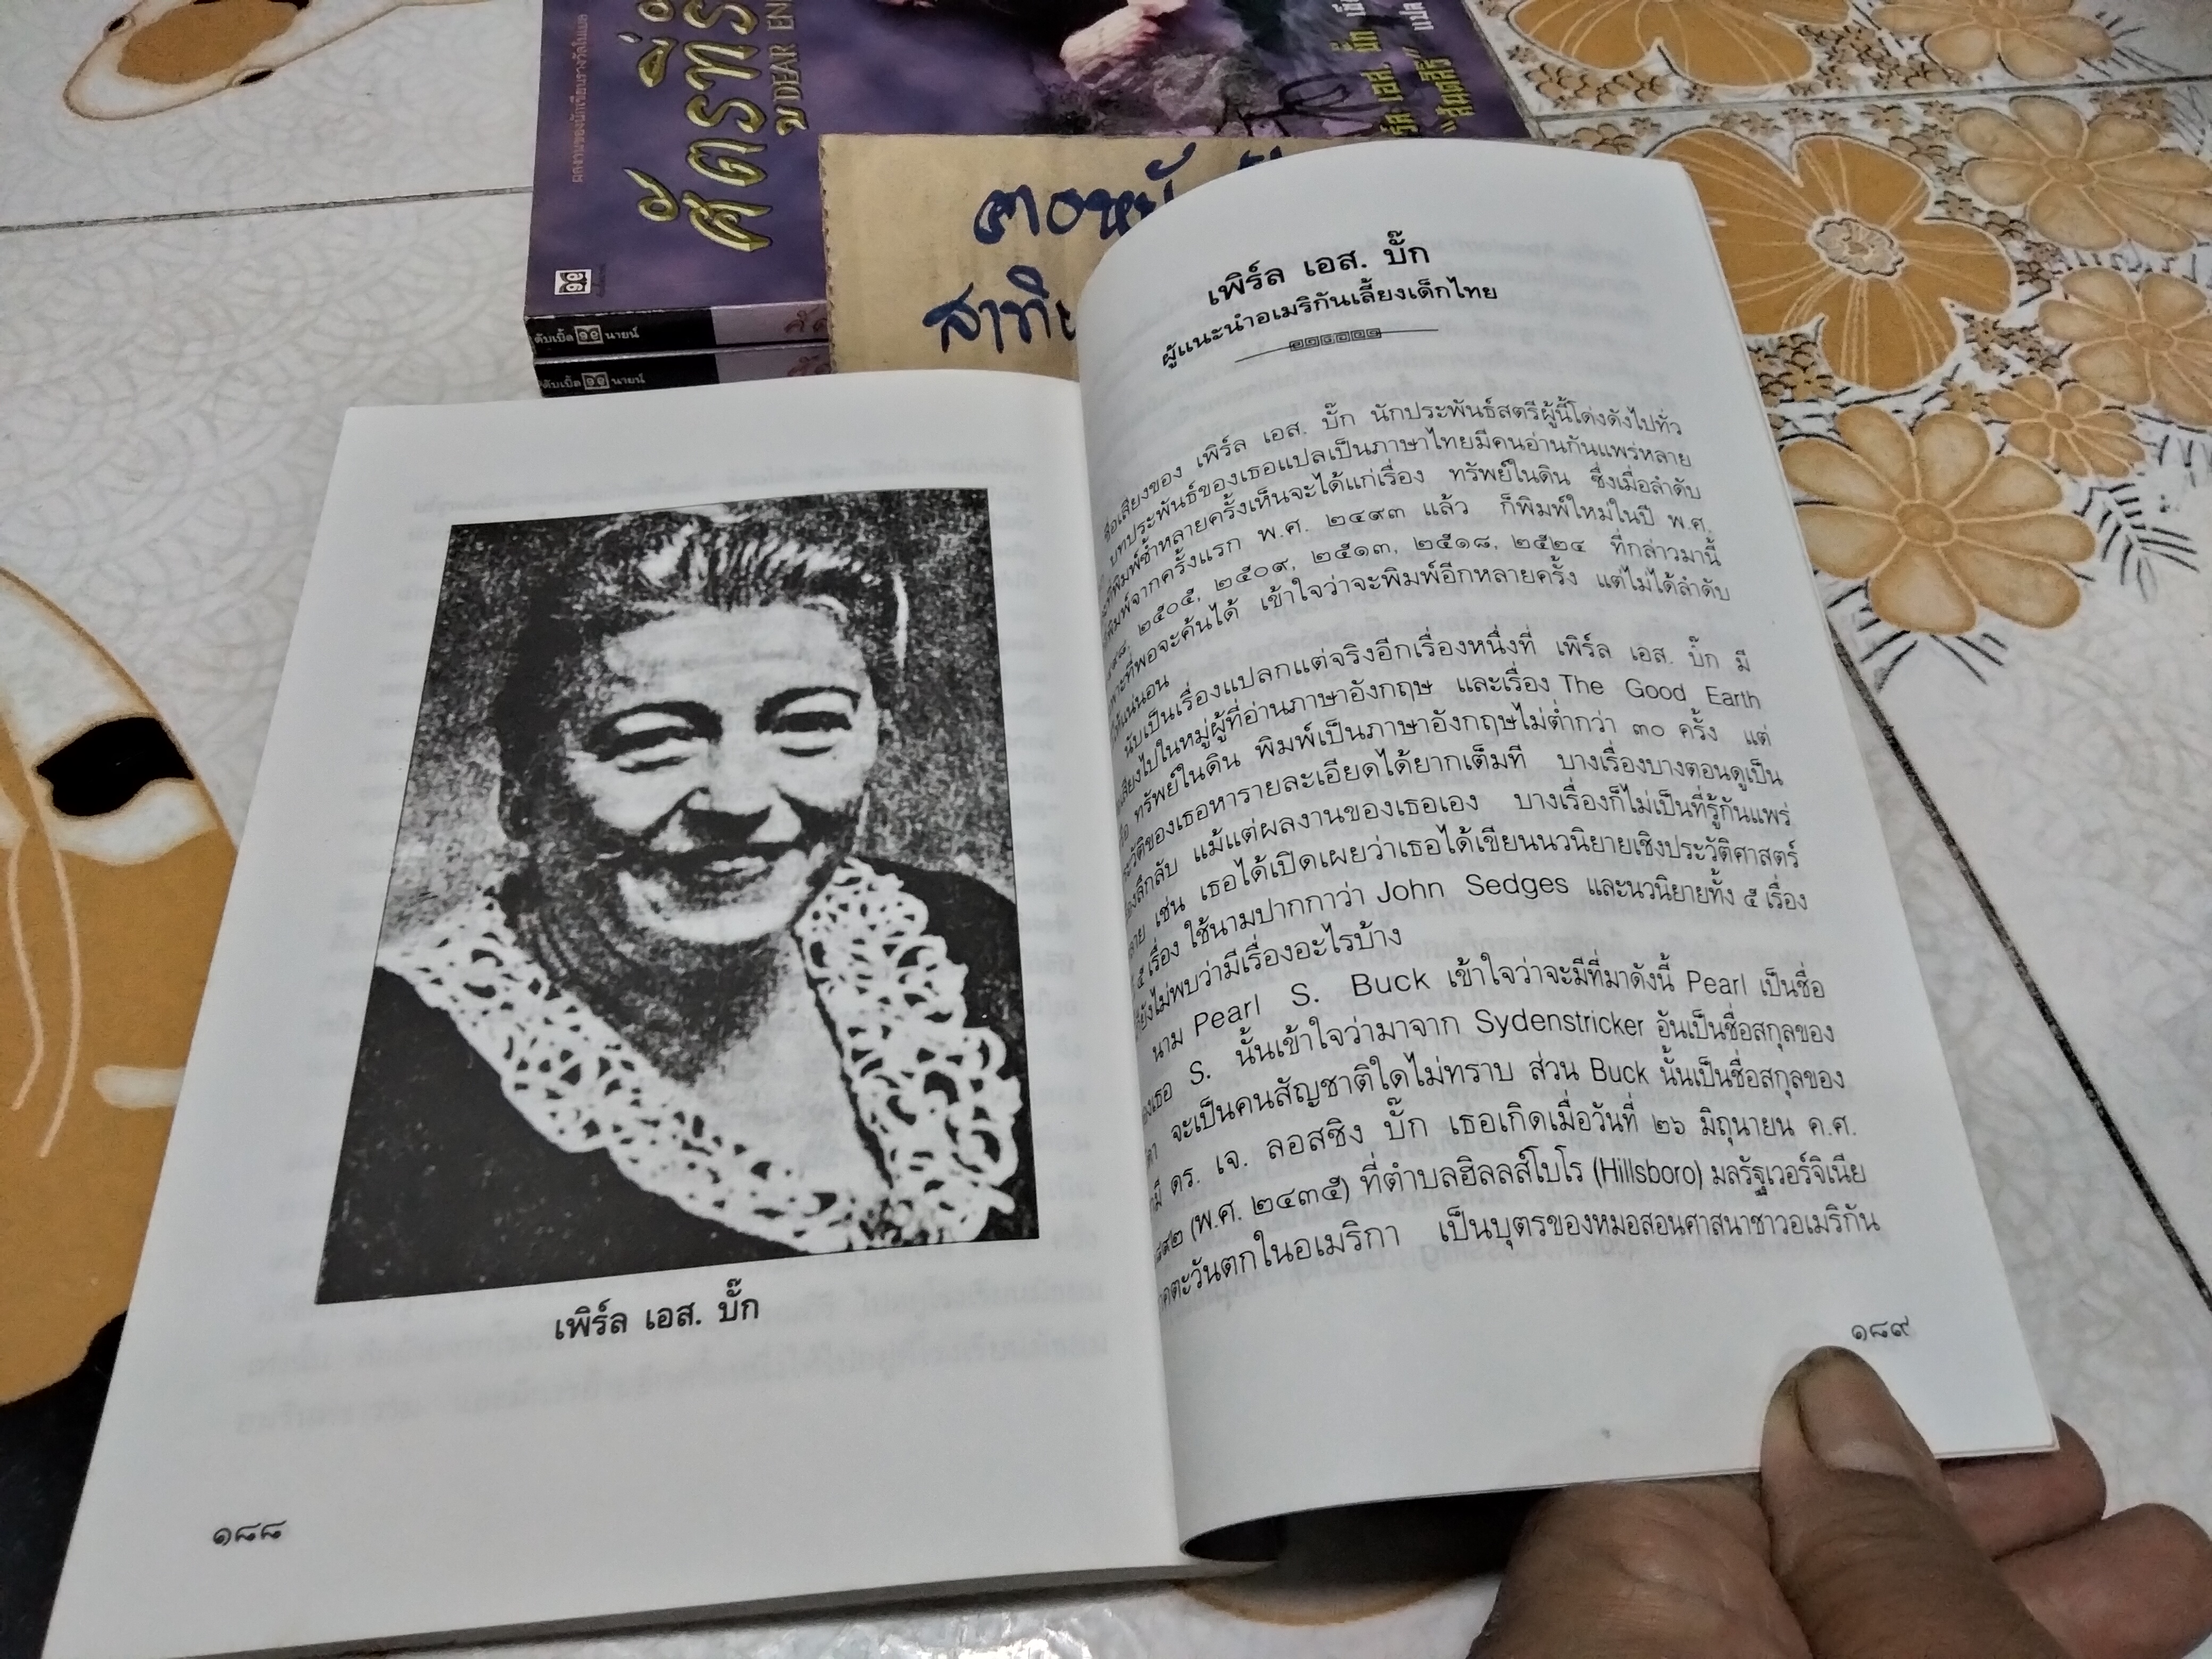 ผลงานของนักเขียนรางวัลโนเบล
ศัตรูที่รัก
DEAR
เอส. บั๊ก
แปล
ดับเบิ้ล ๑๙ นายน์
ดับเบิ้ล ๑๙ นายน์
เพิร์ล เอส. บั๊ก
๑๘๘
เพิร์ล เอส. บั๊ก
ผู้แนะนำอเมริกันเลี้ยงเด็กไทย
ชื่อเสียงของ เพิร์ล เอส. บั๊ก นักประพันธ์สตรีผู้นี้โด่งดังไปทั่ว
บทประพันธ์ของเธอแปลเป็นภาษาไทยมีคนอ่านกันแพร่หลาย
พิมพ์ซ้ำหลายครั้งเห็นจะได้แก่เรื่อง ทรัพย์ในดิน ซึ่งเมื่อลำดับ
พิมพ์จากครั้งแรก พ.ศ. ๒๔๙๓ แล้ว ก็พิมพ์ใหม่ในปี พ.ศ.
๒๕๐๕, ๒๕๐๙, ๒๕๑๓, ๒๕๑๘, ๒๕๒๔ ที่กล่าวมานี้
ที่พอจะค้นได้ เข้าใจว่าจะพิมพ์อีกหลายครั้ง แต่ไม่ได้ลำดับ
แน่นอน
นับเป็นเรื่องแปลกแต่จริงอีกเรื่องหนึ่งที่ เพิร์ล เอส. บั๊ก มี
เสียงไปในหมู่ผู้ที่อ่านภาษาอังกฤษ และเรื่อง The Good Earth
ทรัพย์ในดิน พิมพ์เป็นภาษาอังกฤษไม่ต่ำกว่า ๓๐ ครั้ง แต่
ของเธอหารายละเอียดได้ยากเต็มที บางเรื่องบางตอนดูเป็น
ลึกลับ แม้แต่ผลงานของเธอเอง บางเรื่องก็ไม่เป็นที่รู้กันแพร่
เช่น เธอได้เปิดเผยว่าเธอได้เขียนนวนิยายเชิงประวัติศาสตร์
๕ เรื่อง ใช้นามปากกาว่า John Sedges และนวนิยายทั้ง ๕ เรื่อง
ยังไม่พบว่ามีเรื่องอะไรบ้าง
นาม Pearl S. Buck เข้าใจว่าจะมีที่มาดังนี้ Pearl เป็นชื่อ
ของเธอ S. นั้นเข้าใจว่ามาจาก Sydenstricker อันเป็นชื่อสกุลของ
จะเป็นคนสัญชาติใดไม่ทราบ ส่วน Buck นั้นเป็นชื่อสกุลของ
ดร. เจ. ลอสซิง บั๊ก เธอเกิดเมื่อวันที่ ๒๖ มิถุนายน ค.ศ.
(พ.ศ. ๒๔๓๕) ที่ตำบลฮิลลส์โบโร (Hillsboro) มลรัฐเวอร์จิเนีย
ตะวันตกในอเมริกา เป็นบุตรของหมอสอนศาสนาชาวอเมริกัน
๑๘๙